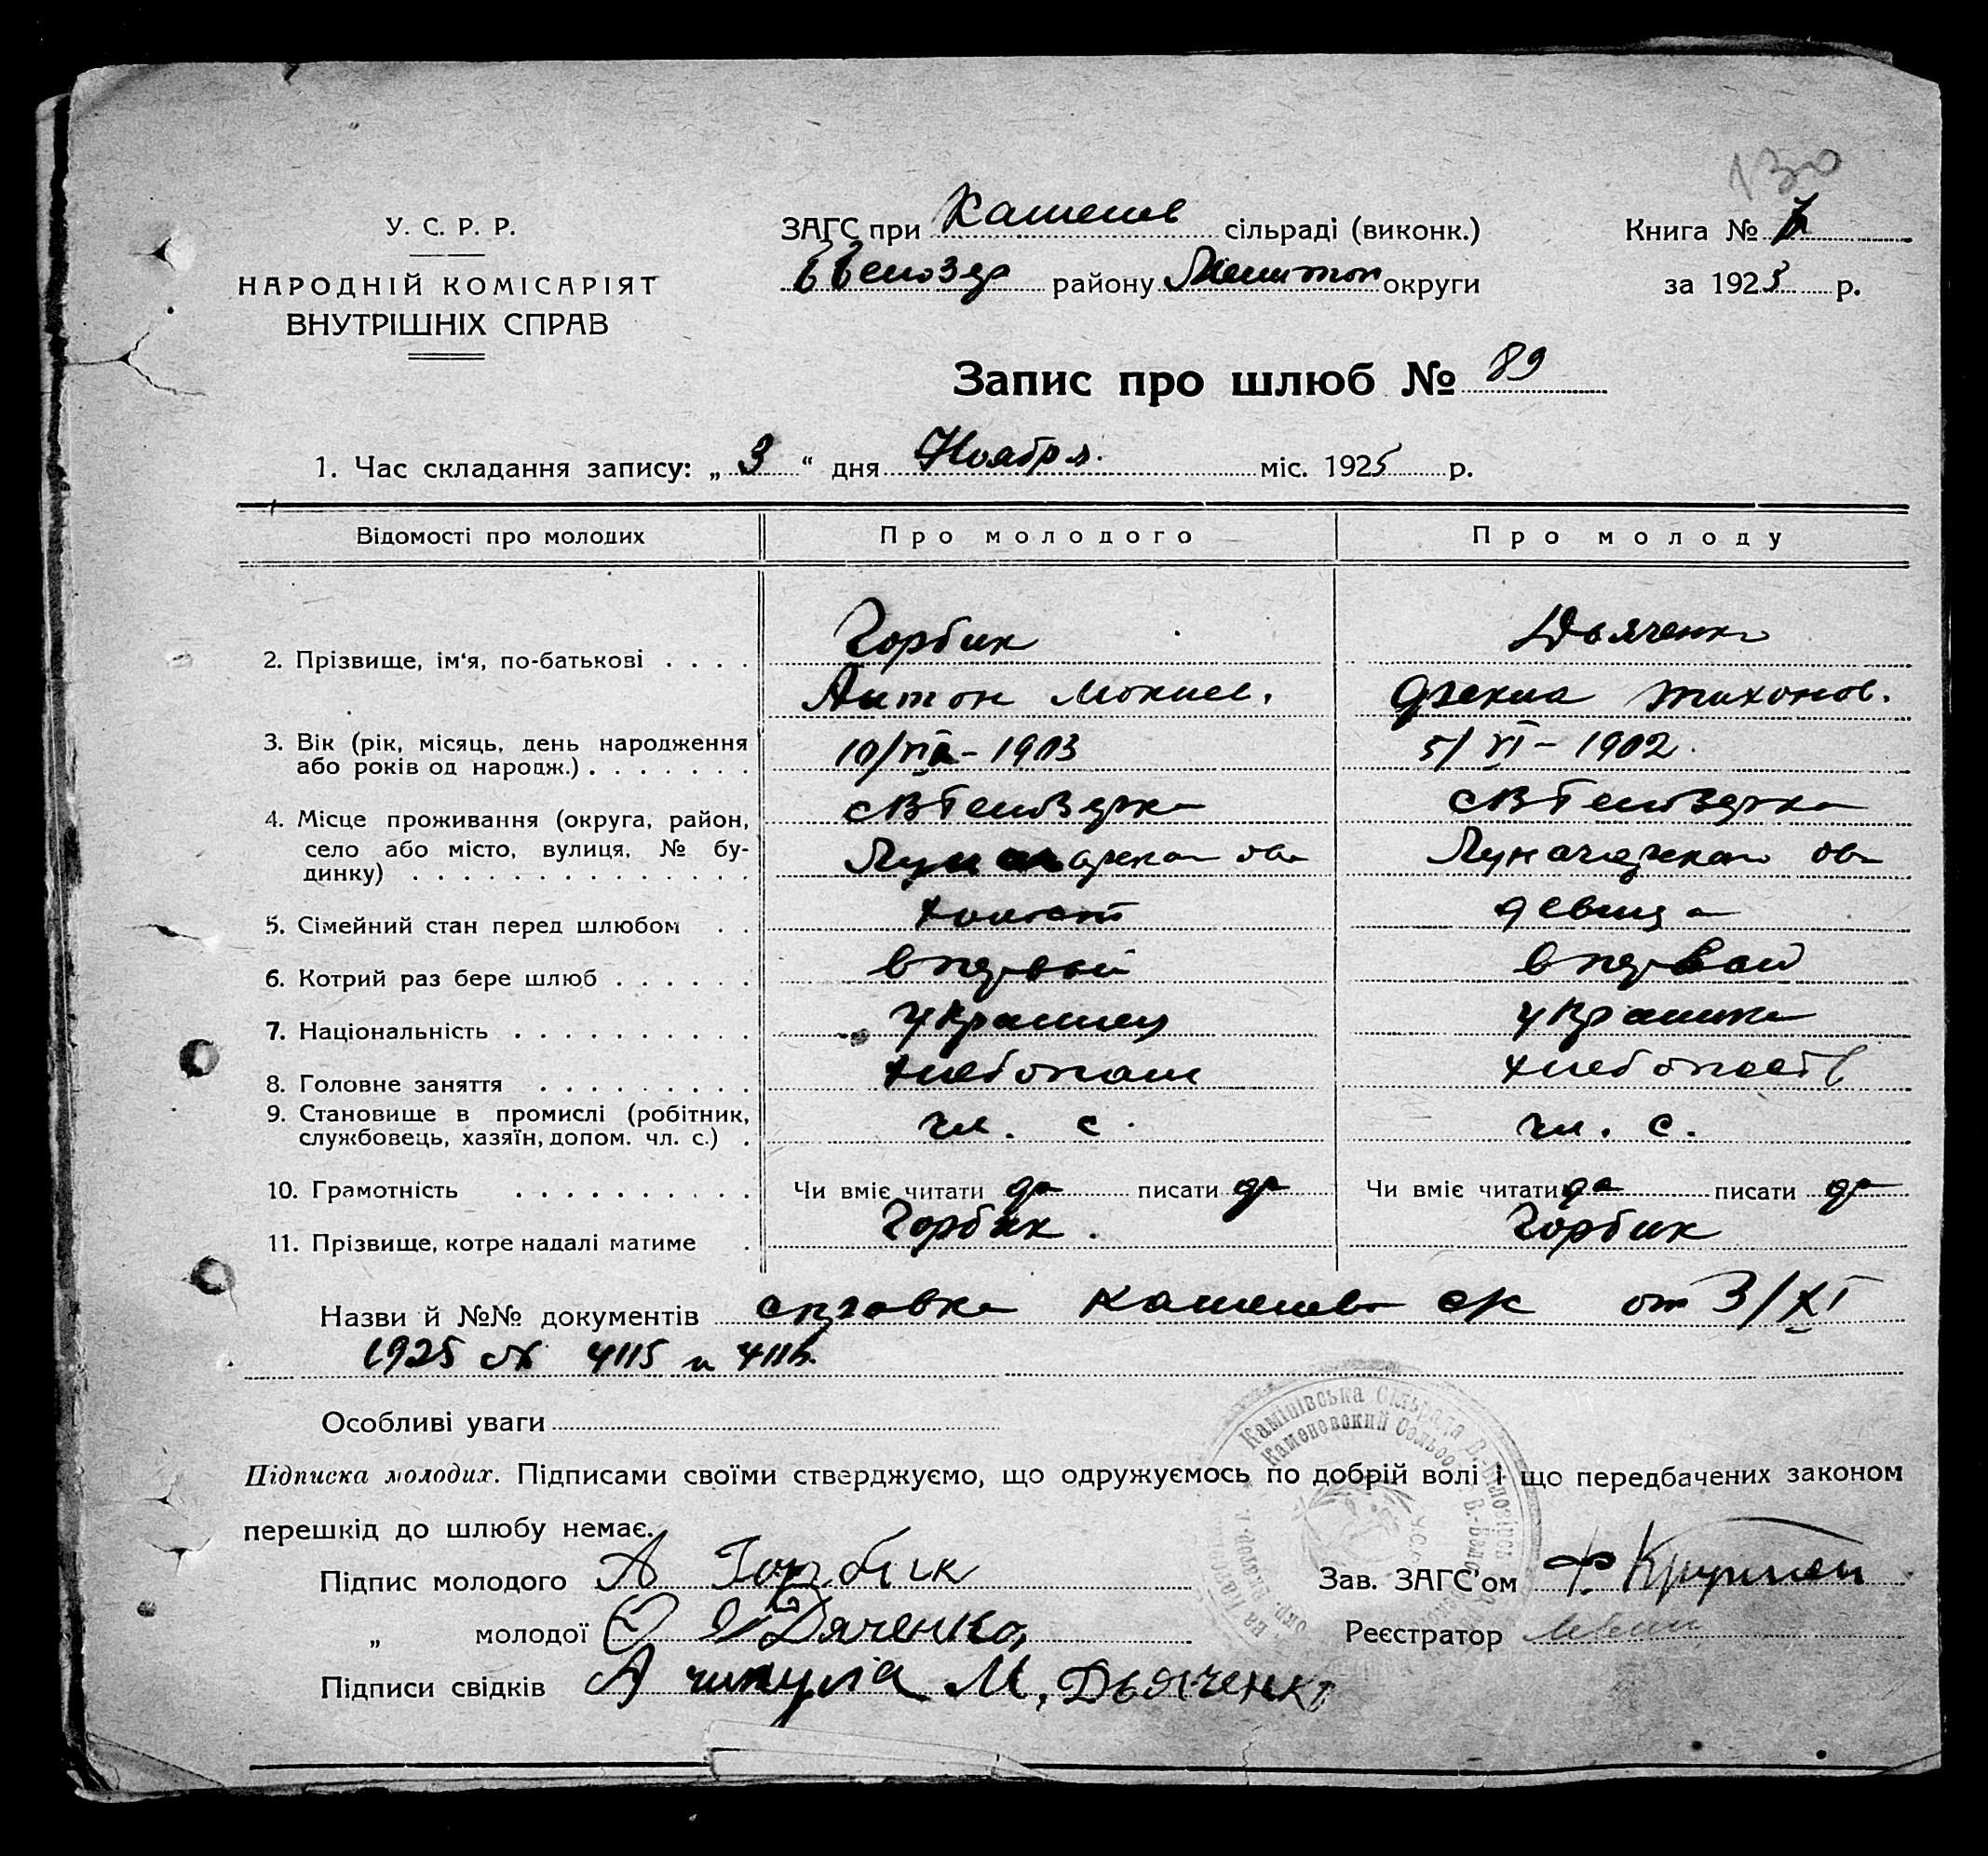 130
У. С. Р. Р.
НАРОДНІЙ КОМІСАРІЯТ
ВНУТРІШНІХ СПРАВ
ЗАГС при Каменев сільраді (виконк.)
ББелозер району Мелитоп округи
Книга №
за 1925 р.
Запис про шлюб № 89
1. Час складання запису: „ 3 “ дня Ноября. міс. 1925 р.
Відомості про молодих
Про молодого
Про молоду
2. Прізвище, ім'я, по-батькові . . . .
Горбик
Антон Мокиев.
Дьяченко
Фекла Тихонов.
3. Вік (рік, місяць, день народження
або років од народж.) . . . . . . .
10/ - 1903
5/VI - 1902.
4. Місце проживання (округа, район,
село або місто, вулиця, № бу-
динку) . . . . . . . . . . . . . . .
сВБелозерка
сВБелозерка
Луначарского
5. Сімейний стан перед шлюбом . .
холост
девица
6. Котрий раз бере шлюб . . . . . .
впервый
впервой
7. Національність . . . . . . . . . .
украинец
украинка
8. Головне заняття . . . . . . . . .
хлебопаш
хлебопаств
9. Становище в промислі (робітник,
службовець, хазяїн, допом. чл. с.) .
чл. с.
чл. с.
10. Грамотність . . . . . . . . . .
Чи вміє читати да писати да
Чи вміє читати да писати да
11. Прізвище, котре надалі матиме .
Горбик.
Горбик
Назви й №№ документів справка Каменев с/с от 3/XI
1925 № 4115 и 4116.
Особливі уваги
Підписка молодих. Підписами своїми стверджуємо, що одружуємось по добрій волі і що передбачених законом
перешкід до шлюбу немає.
Камінівська Сільрада В.-Білозірсь
Каменевский Сельсо В.-Бело
Підпис молодого А Горбик
„ молодої Дяченко
Підписи свідків А М. Дьяченко
Зав. ЗАГС'ом
Реєстратор